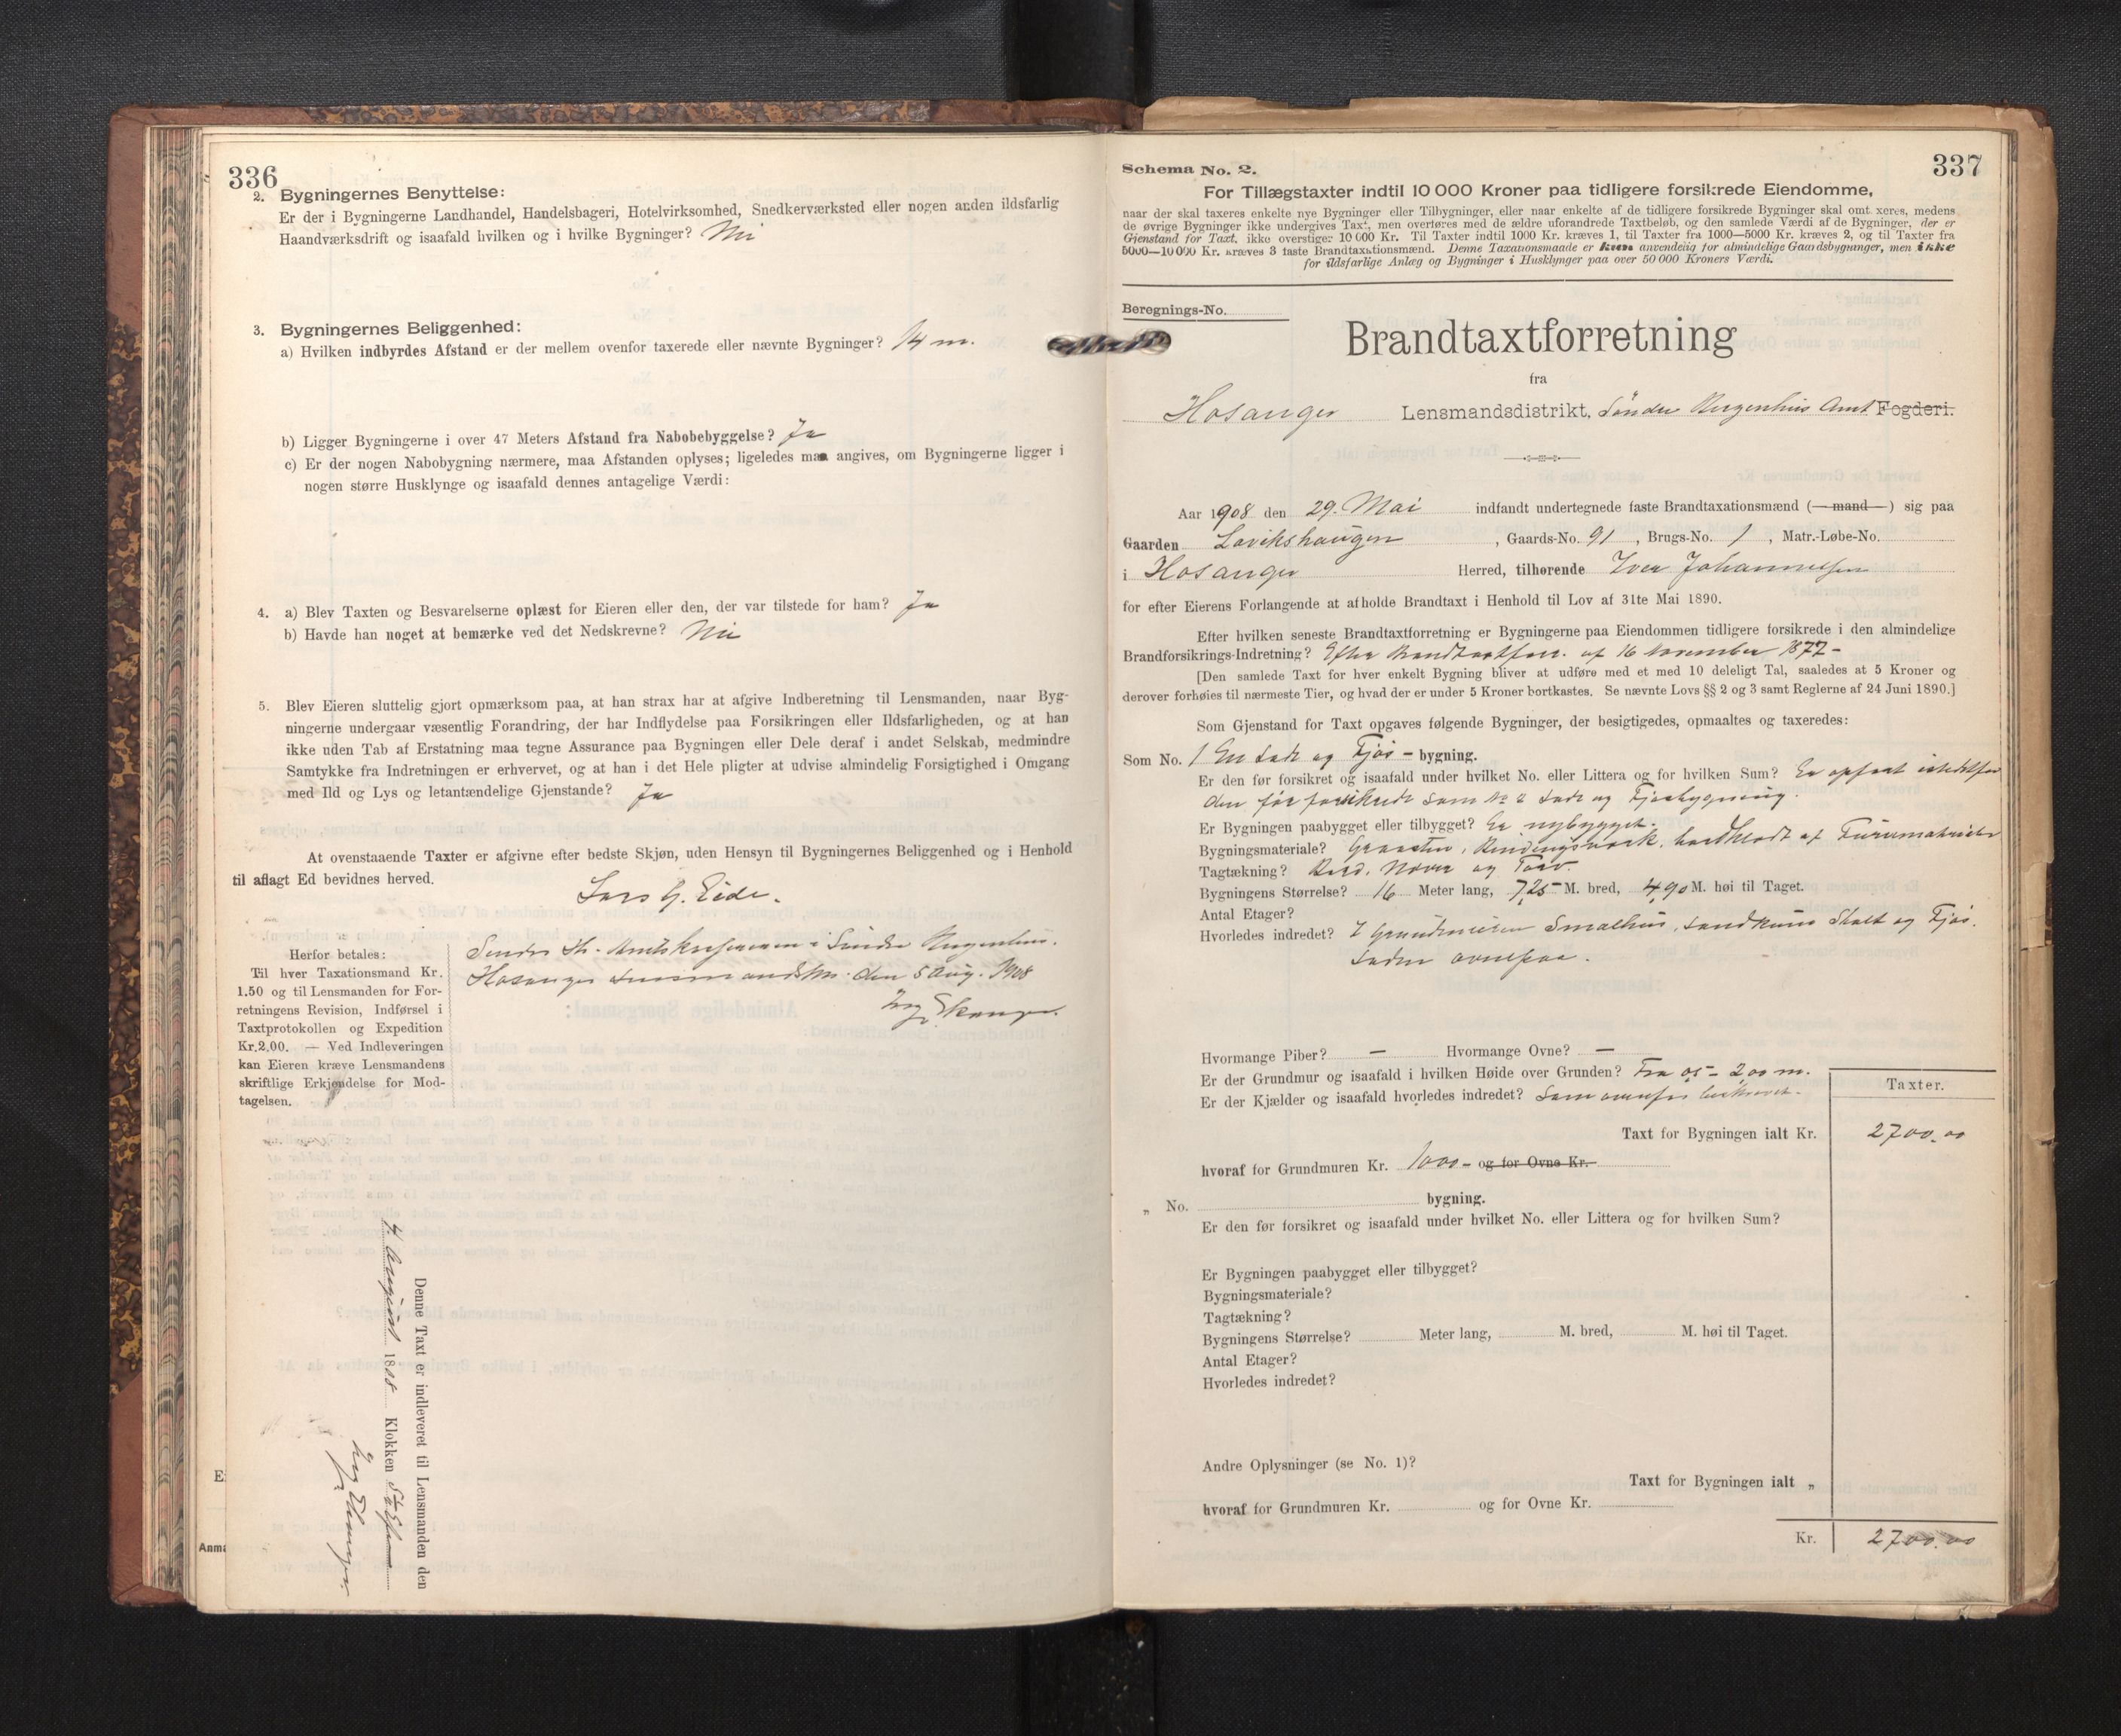 336
2. Bygningernes Benyttelse:
Er der i Bygningerne Landhandel, Handelsbageri, Hotelvirksomhed, Snedkerværksted eller nogen anden ildsfarlig
Haandværksdrift og isaafald hvilken og i hvilke Bygninger? Nei
3. Bygningernes Beliggenhed:
a) Hvilken indbyrdes Afstand er der mellem ovenfor taxerede eller nævnte Bygninger? 14 m.
b) Ligger Bygningerne i over 47 Meters Afstand fra Nabobebyggelse? Ja
c) Er der nogen Nabobygning nærmere, maa Afstanden oplyses; ligeledes maa angives, om Bygningerne ligger i
nogen større Husklynge og isaafald dennes antagelige Værdi:
4. a) Blev Taxten og Besvarelserne oplæst for Eieren eller den, der var tilstede for ham? Ja
b) Havde han noget at bemærke ved det Nedskrevne? Nei
5. Blev Eieren sluttelig gjort opmærksom paa, at han strax har at afgive Indberetning til Lensmanden, naar Byg-
ningerne undergaar væsentlig Forandring, der har Indflydelse paa Forsikringen eller Ildsfarligheden, og at han
ikke uden Tab af Erstatning maa tegne Assurance paa Bygningen eller Dele deraf i andet Selskab, medmindre
Samtykke fra Indretningen er erhvervet, og at han i det Hele pligter at udvise almindelig Forsigtighed i Omgang
med Ild og Lys og letantændelige Gjenstande? Ja
At ovenstaaende Taxter er afgivne efter bedste Skjøn, uden Hensyn til Bygningernes Beliggenhed og i Henhold
til aflagt Ed bevidnes herved.
Lars G. Eide.
Herfor betales:
Til hver Taxationsmand Kr.
1.50 og til Lensmanden for For-
retningens Revision, Indførsel i
Taxtprotokollen og Expedition
Kr. 2.00. — Ved Indleveringen
kan Eieren kræve Lensmandens
skriftlige Erkjendelse for Mod-
tagelsen.
Sendes Hr. Amtskassereren i Søndre Bergenhus.
Hosanger den 5 Aug. 1908
Denne Taxt er indleveret til Lensmanden den
4. August 1808 Klokken
337
Schema No. 2.
For Tillægstaxter indtil 10 000 Kroner paa tidligere forsikrede Eiendomme,
naar der skal taxeres enkelte nye Bygninger eller Tilbygninger, eller naar enkelte af de tidligere forsikrede Bygninger skal omtaxeres, medens
de øvrige Bygninger ikke undergives Taxt, men overføres med de ældre uforandrede Taxtbeløb, og den samlede Værdi af de Bygninger, der er
Gjenstand for Taxt, ikke overstiger 10 000 Kr. Til Taxter indtil 1000 Kr. kræves 1, til Taxter fra 1000—5000 Kr. kræves 2, og til Taxter fra
5000—10 000 Kr. kræves 3 faste Brandtaxationsmænd. Denne Taxationsmaade er kun anvendelig for almindelige Gaardsbygninger, men ikke
for ildsfarlige Anlæg og Bygninger i Husklynger paa over 50 000 Kroners Værdi.
Beregnings-No.
Brandtaxtforretning
fra
Hosanger Lensmandsdistrikt, Søndre Bergenhus Amt Fogderi.
Aar 1908 den 29. Mai indfandt undertegnede faste Brandtaxationsmænd (—mand—) sig paa
Gaarden Lavikshaugen, Gaards-No. 91, Brugs-No. 1, Matr.-Løbe-No.
i Hosanger Herred, tilhørende Iver Johannessen
for efter Eierens Forlangende at afholde Brandtaxt i Henhold til Lov af 31te Mai 1890.
Efter hvilken seneste Brandtaxtforretning er Bygningerne paa Eiendommen tidligere forsikrede i den almindelige
Brandforsikrings-Indretning? Efter Brandtaxtforr. af 16 November 1877-
[Den samlede Taxt for hver enkelt Bygning bliver at udføre med et med 10 deleligt Tal, saaledes at 5 Kroner og
derover forhøies til nærmeste Tier, og hvad der er under 5 Kroner bortkastes. Se nævnte Lovs §§ 2 og 3 samt Reglerne af 24 Juni 1890.]
Som Gjenstand for Taxt opgaves følgende Bygninger, der besigtigedes, opmaaltes og taxeredes:
Som No. 1 En Lade og Fjøs-bygning.
Er den før forsikret og isaafald under hvilket No. eller Littera og for hvilken Sum? Er opført istedetfor
den før forsikrede som No 2 Lade og Fjøsbygning.
Er Bygningen paabygget eller tilbygget? Er nybygget.
Bygningsmateriale? Graasten, Bindingsværk, bordklædt af Furumaterialer
Tagtækning? Bord, Næver og Torv.
Bygningens Størrelse? 16 Meter lang, 7,25 M. bred, 4,90 M. høi til Taget.
Antal Etager?
Hvorledes indredet? I Grundmuren Smalhus, Landkum Stald og Fjøs.
Laden ovenpaa.
Hvormange Piber? — Hvormange Ovne? —
Er der Grundmur og isaafald i hvilken Høide over Grunden? Fra 0,5 - 2,00 m.
Er der Kjælder og isaafald hvorledes indredet? Som ovenfor beskrevet.
Taxter.
Taxt for Bygningen ialt Kr. 2700.00
hvoraf for Grundmuren Kr. 1000- og for Ovne Kr.
„ No. bygning.
Er den før forsikret og isaafald under hvilket No. eller Littera og for hvilken Sum?
Er Bygningen paabygget eller tilbygget?
Bygningsmateriale?
Tagtækning?
Bygningens Størrelse? Meter lang, M. bred, M. høi til Taget.
Antal Etager?
Hvorledes indredet?
Andre Oplysninger (se No. 1)?
Taxt for Bygningen ialt „
hvoraf for Grundmuren Kr. og for Ovne Kr.
Kr. 2700.00